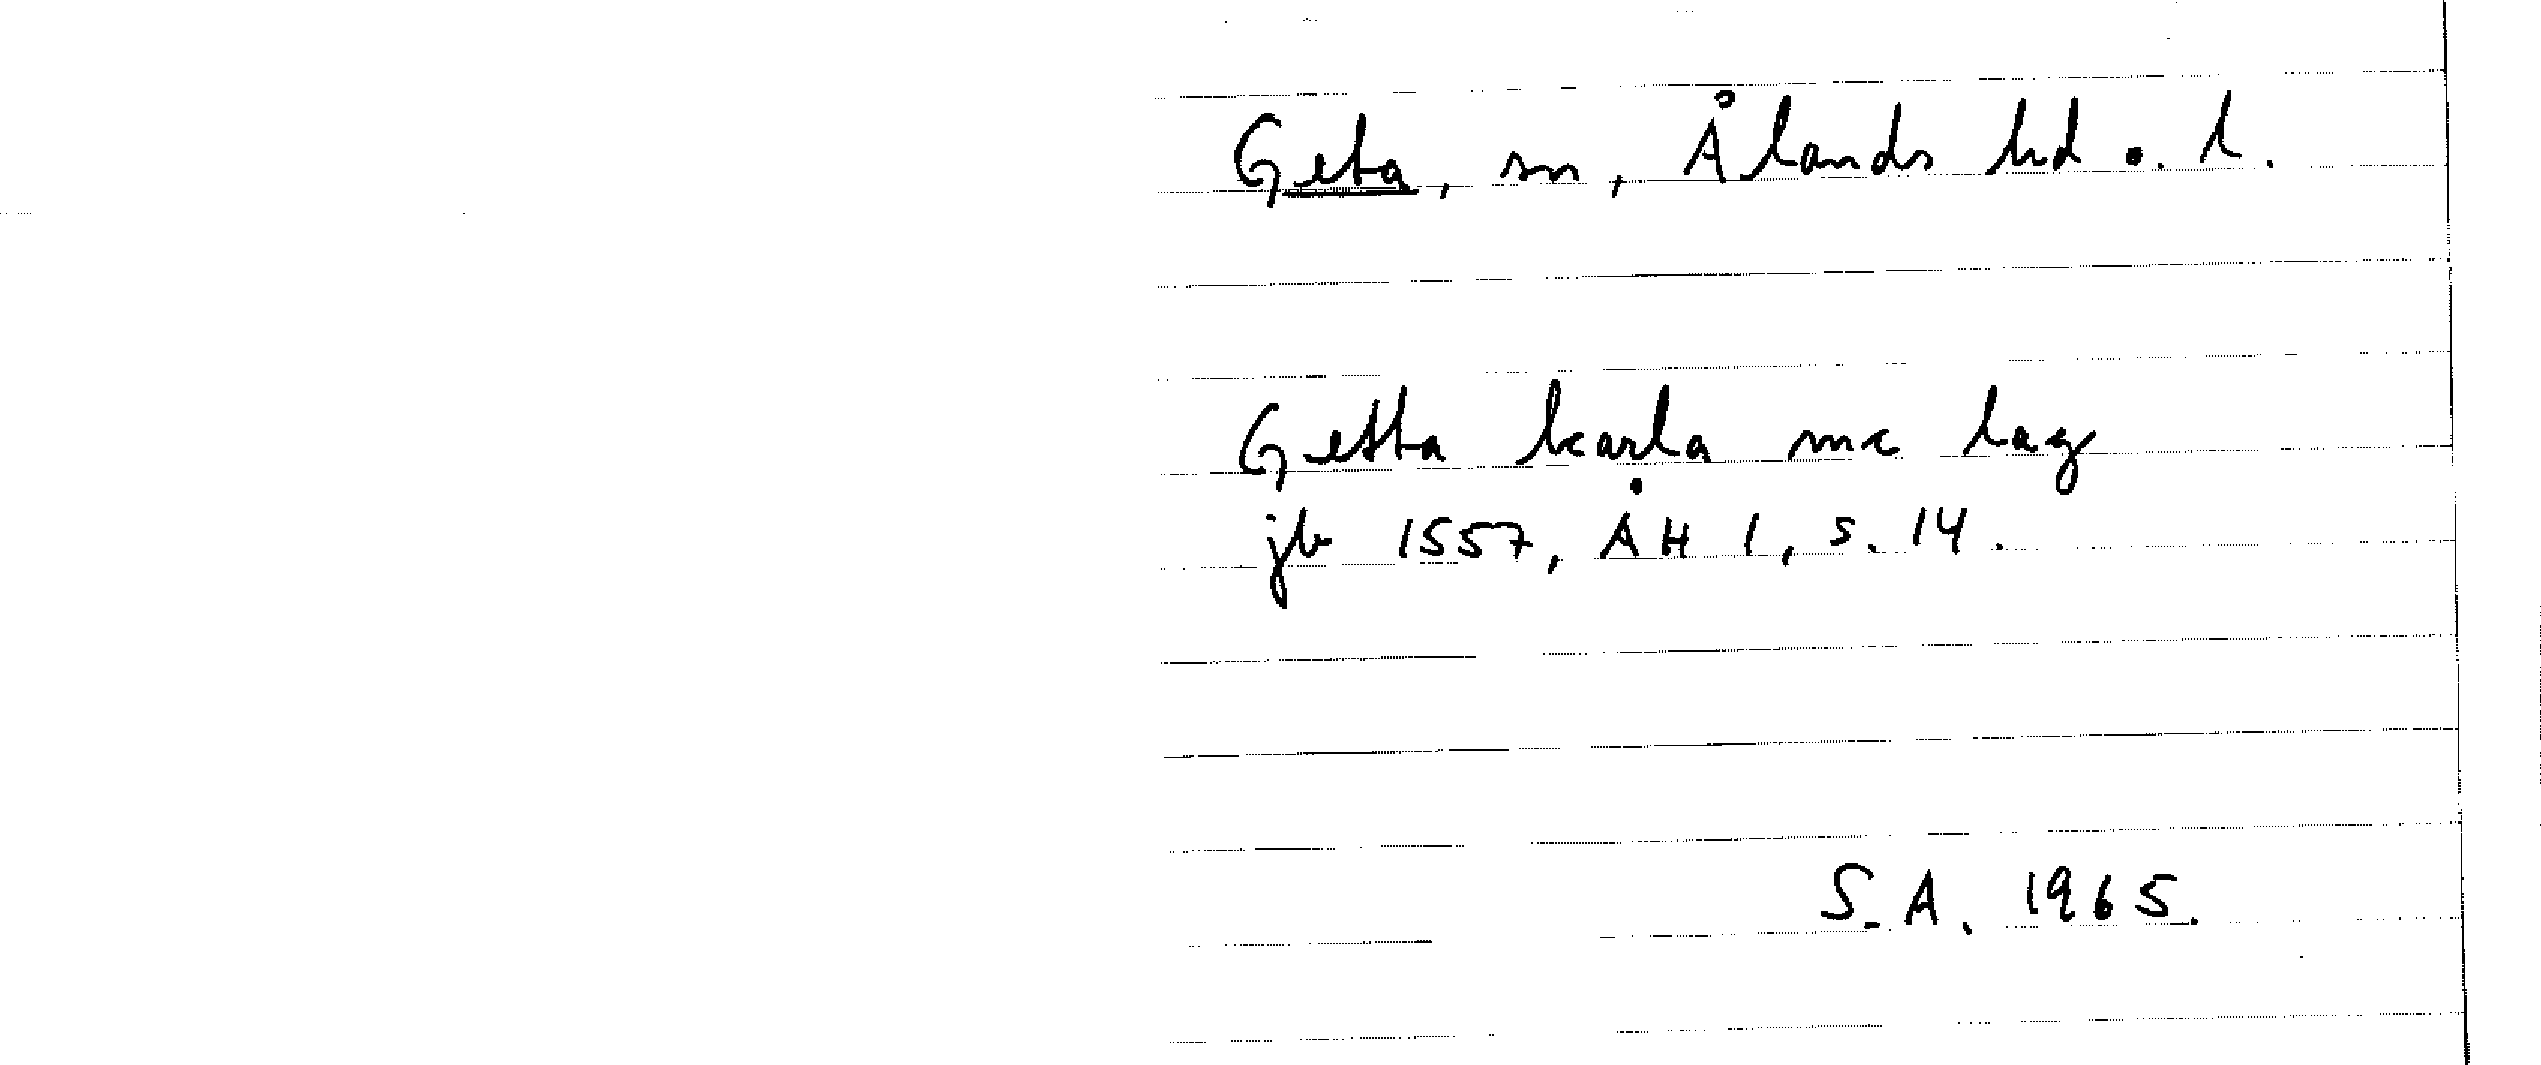 Geta, sn, Ålands hd o. l.
Getta karla mc lag
jb 1557, ÅH 1, s. 14.
S.A. 1965.